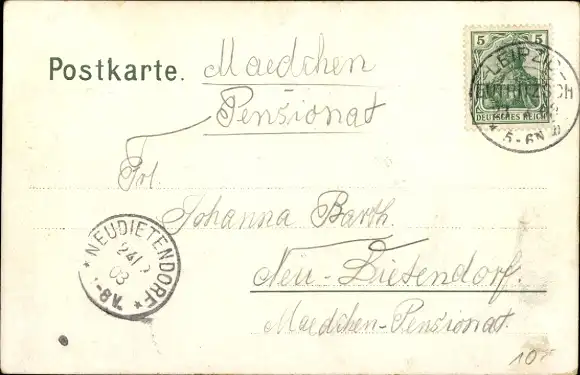 Postkarte.
Maedchen
Pensionat
5 5
DEUTSCHES REICH
LEIPZIG-
EUTRITZSCH
* 5-6N
Frl.
Johanna Barth.
Neu-Dietendorf.
Maedchen-Pensionat.
* NEUDIETENDORF *
24
03
-8V.
10